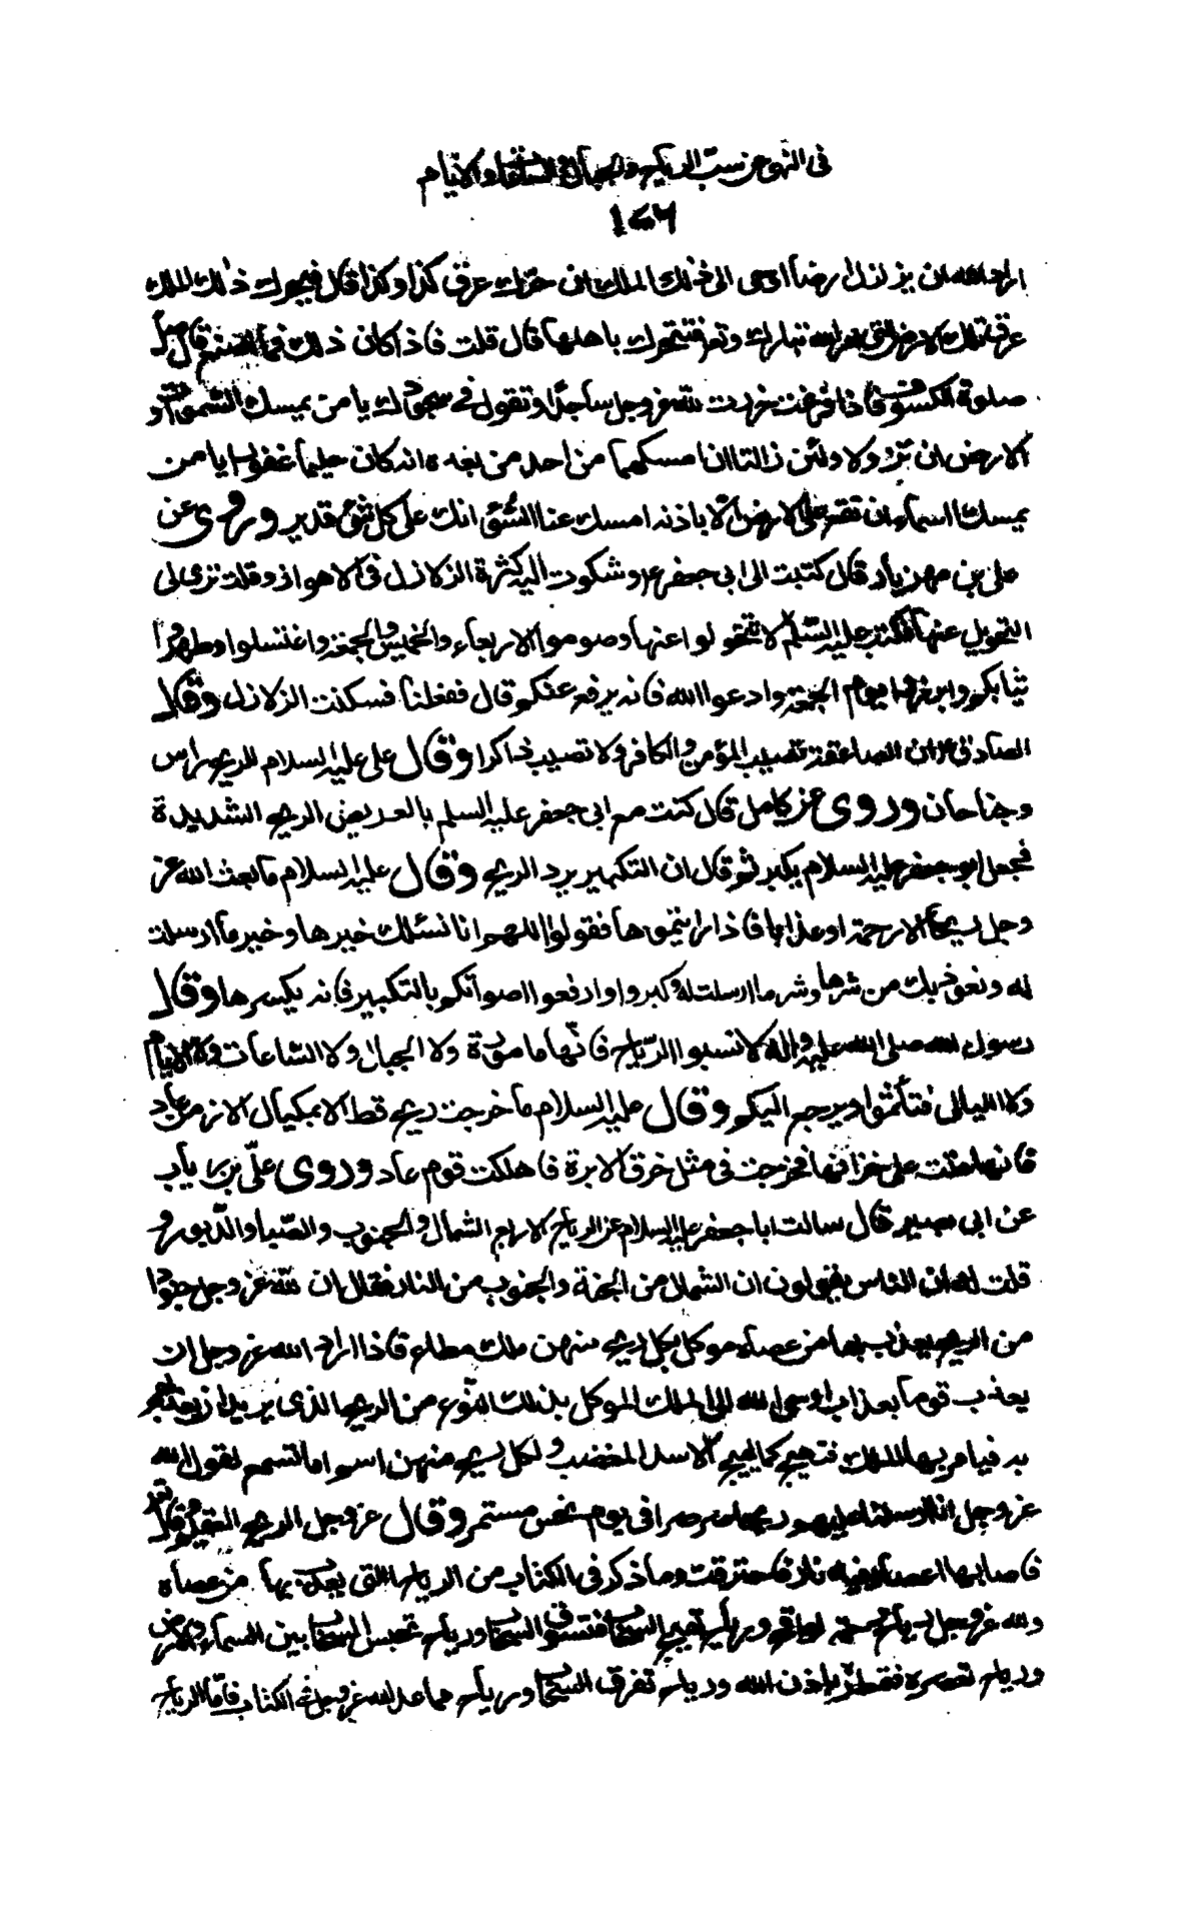 فى النهى عن سب الرياح والجبال والساعات والايام
١٧٦
اراد الله ان يزلزل ارضا اوحى الى ذلك الملك ان حرّك عرق كذا وكذا قال فيحرك ذلك الملك
عرق تلك الارض التى امر الله تبارك وتعا فتتحرك باهلها قال قلت فاذا كان ذلك فما اصنع قال صلّ
صلوة الكسوف فاذا فرغت خررت لله عزوجل ساجدًا وتقول فى سجودك يا من يمسك السموات و
الارض ان تزولا ولئن زالتا ان امسكهما من احد من بعده انه كان حليما غفورا يا من
يمسك السماء ان تقع على الارض الا باذنه امسك عنا السّوء انك على كل شئ قدير وروى عن
على بن مهزيار قال كتبت الى ابى جعفر ع وشكوت اليه كثرة الزلازل فى الاهواز وقلت ترى لى
التحويل عنها فكتب عليه السّلم لا تتحولوا عنها وصوموا الاربعاء والخميس والجمعة واغتسلوا وطهروا
ثيابكم وابرزوا يوم الجمعة وادعوا الله فانه يرفع عنكم قال ففعلنا فسكنت الزلازل وقال
الصادق ع ان الصاعقة تصيب المؤمن والكافر ولا تصيب ذاكرا وقال على عليه السلام للريح راس
وجناحان وروى عن كامل قال كنت مع ابى جعفر عليه السلم بالعريض الريح الشديدة
فجعل ابو جعفر عليه السلام يكبر ثم قال ان التكبير يرد الريح وقال عليه السلام ما بعث الله عز
وجل ريحا الا رحمة او عذابا فاذا رايتموها فقولوا اللهم انا نسئلك خيرها وخير ما ارسلت
له ونعوذ بك من شرها وشر ما ارسلت له وكبروا وارفعوا اصواتكم بالتكبير فانه يكسرها وقال
رسول الله صلى الله عليه واله لا تسبوا الرّياح فانّها مامورة ولا الجبال ولا الساعات ولا الايام
ولا الليالى فتأثموا ويرجع اليكم وقال عليه السلام ما خرجت ريح قط الا بمكيال الا زمن عاد
فانها عتت على خزانها فخرجت فى مثل خرق الابرة فاهلكت قوم عاد وروى علىّ بن رياب
عن ابى بصير قال سالت ابا جعفر عليه السلام عن الرياح الاربع الشمال والجنوب والصّبا والدّبور و
قلت له ان الناس يقولون ان الشمال من الجنة والجنوب من النار فقال ان لله عزوجل جنودا
من الريح يعذب بها من عصاه موكل بكل ريح منهن ملك مطاع فاذا اراد الله عزوجل ان
يعذب قوما بعذاب اوحى الله الى الملك الموكل بذلك النّوع من الريح الذى يريد ان يعذبهم
به فيامر بها الملك فتهيج كما يهيج الاسد المغضب ولكل ريح منهن اسم اما تسمع لقول الله
عزوجل انا ارسلنا عليهم ريحا صرصرا فى يوم نحس مستمر وقال عزوجل الريح العقيم وقال تعا
فاصابها اعصار فيه نار فاحترقت وما ذكر فى الكتاب من الرياح التى يعذب بها من عصاه
ولله عزوجل رياح رحمة لواقح ورياح تهيج السحاب فتسوق السحاب ورياح تحبس السحاب بين السماء والارض
ورياح تعصره فتمطره باذن الله ورياح تفرق السحاب ورياح مما عد الله عزوجل فى الكتاب فاما الرياح